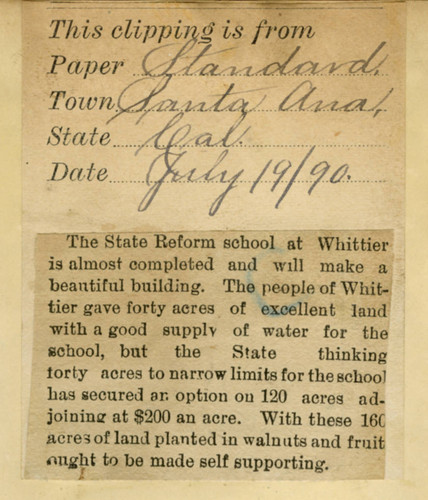 This clipping is from
Paper Standard.
Town Santa Ana,
State Cal.
Date July 19/90.
The State Reform school at Whittier
is almost completed and will make a
beautiful building. The people of Whit-
tier gave forty acres of excellent land
with a good supply of water for the
school, but the State thinking
forty acres to narrow limits for the school
has secured an option on 120 acres ad-
joining at $200 an acre. With these 160
acres of land planted in walnuts and fruit
ought to be made self supporting.